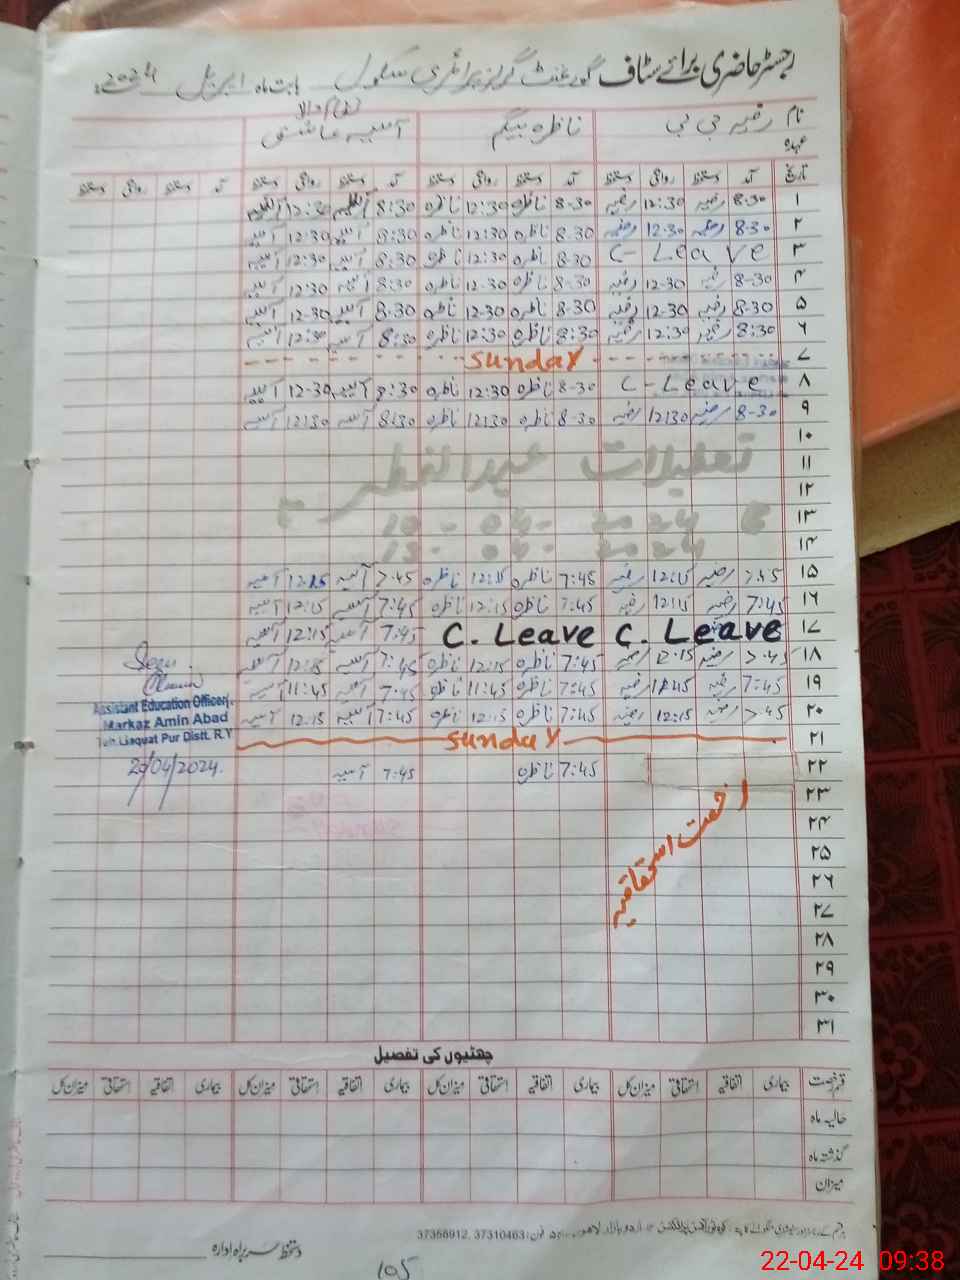 رجسٹر حاضری برائے سٹاف گورنمنٹ گرلز پرائمری سکول بابت ماہ اپریل 2024ء
نام رضیہ بی بی ناظرہ بیگم آسیہ
عہدہ
تاریخ آمد دستخط روانگی دستخط آمد دستخط روانگی دستخط آمد دستخط روانگی دستخط آمد دستخط روانگی دستخط
۱ 8-30 رضیہ 12:30 رضیہ 8-30 ناظرہ 12:30 ناظرہ 8:30 12:30
۲ 8-30 رضیہ 12:30 رضیہ 8-30 ناظرہ 12:30 ناظرہ 8:30 آسیہ 12:30 آسیہ
۳ C- Leave 8-30 ناظرہ 12-30 ناظرہ 8:30 آسیہ 12:30 آسیہ
۴ 8-30 رضیہ 12-30 رضیہ 8-30 ناظرہ 12-30 ناظرہ 8:30 آسیہ 12:30 آسیہ
۵ 8-30 رضیہ 12-30 رضیہ 8-30 ناظرہ 12-30 ناظرہ 8.30 آسیہ 12-30 آسیہ
۶ 8:30 رضیہ 12:30 رضیہ 8:30 ناظرہ 12:30 ناظرہ 8:30 آسیہ 12:30 آسیہ
۷ Sunday
۸ C-Leave 8-30 ناظرہ 12:30 ناظرہ 8:30 آسیہ 12-30 آسیہ
۹ 8-30 رضیہ 12:30 رضیہ 8-30 ناظرہ 12:30 ناظرہ 8:30 آسیہ 12:30 آسیہ
۱۰
۱۱ تعطیلات عیدالفطر
۱۲
۱۳ 10-04-2024
۱۴ 13-04-2024
۱۵ 7:45 رضیہ 12:15 رضیہ 7:45 ناظرہ 12:15 ناظرہ 7:45 آسیہ 12:15 آسیہ
۱۶ 7:45 رضیہ 12:15 رضیہ 7:45 ناظرہ 12:15 ناظرہ 7:45 آسیہ 12:15 آسیہ
۱۷ C. Leave C. Leave 7:45 آسیہ 12:15 آسیہ
۱۸ 7:45 رضیہ 12:15 رضیہ 7:45 ناظرہ 12:15 ناظرہ 7:45 آسیہ 12:15 آسیہ
۱۹ 7:45 رضیہ 11:45 رضیہ 7:45 ناظرہ 11:45 ناظرہ 7:45 آسیہ 11:45 آسیہ
۲۰ 7:45 رضیہ 12:15 رضیہ 7:45 ناظرہ 12:15 ناظرہ 7:45 آسیہ 12:15 آسیہ
۲۱ Sunday
۲۲ 7:45 ناظرہ 7:45 آسیہ
رخصت استحقاقیہ
۲۳
۲۴
۲۵
۲۶
۲۷
۲۸
۲۹
۳۰
۳۱
Assistant Education Officer
Markaz Amin Abad
Teh Liaquat Pur Distt. R.Y
20/04/2024
چھٹیوں کی تفصیل
قسم رخصت بیماری اتفاقیہ استحقاقی میزان کل بیماری اتفاقیہ استحقاقی میزان کل بیماری اتفاقیہ استحقاقی میزان کل بیماری اتفاقیہ استحقاقی میزان کل
حالیہ ماہ
گذشتہ ماہ
میزان
اردو بازار لاہور فون: 37310463, 37356912
دستخط سربراہ ادارہ
105
22-04-24 09:38